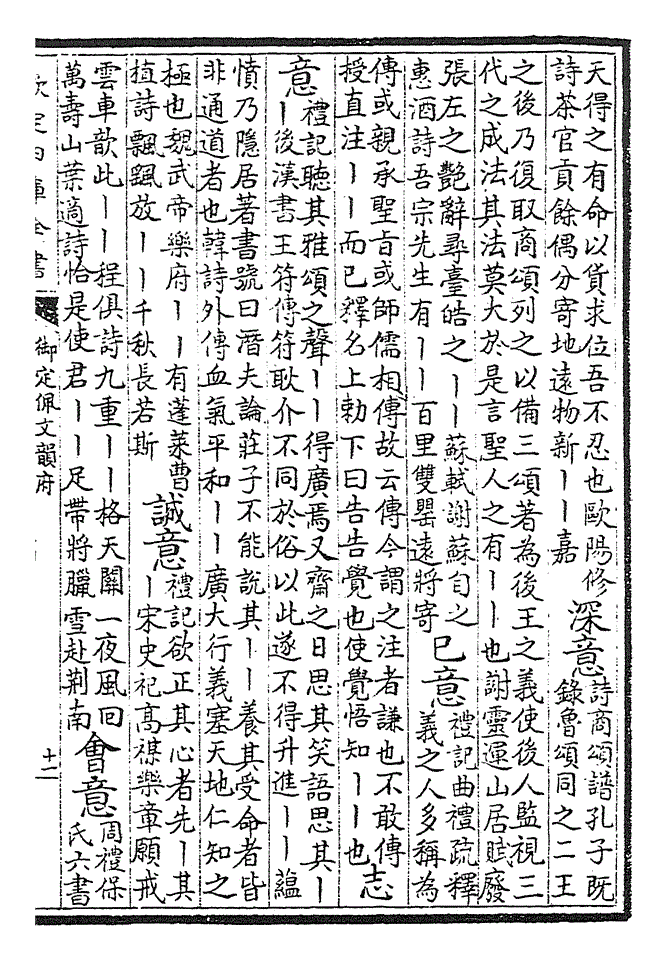 天得之有命以貨求位吾不忍也歐陽修
詩茶官貢餘偶分寄地遠物新丨丨嘉
深意
詩商頌譜孔子既
錄魯頌同之二王
之後乃復取商頌列之以備三頌著為後王之義使後人監視三
代之成法其法莫大於是言聖人之有丨丨也謝靈運山居賦廢
張左之艷辭尋臺皓之丨丨蘇軾謝蘇自之
惠酒詩吾宗先生有丨丨百里雙罌遠將寄
已意
禮記曲禮疏釋
義之人多稱為
傳或親承聖旨或師儒相傳故云傳今謂之注者謙也不敢傳
授直注丨丨而已釋名上勅下曰告告覺也使覺悟知丨丨也
志
意
禮記聽其雅頌之聲丨丨得廣焉又齋之日思其笑語思其丨
丨後漢書王符傳符耿介不同於俗以此遂不得升進丨丨蘊
憤乃隱居著書號曰潛夫論莊子不能說其丨丨養其受命者皆
非通道者也韓詩外傳血氣平和丨丨廣大行義塞天地仁知之
極也魏武帝樂府丨丨有蓬萊曹
植詩飄飖放丨丨千秋長若斯
誠意
禮記欲正其心者先丨其
丨宋史祀高禖樂章願戒
雲車歆此丨丨程俱詩九重丨丨格天關一夜風回
萬壽山葉適詩怡是使君丨丨足帶將臘雪赴荆南
會意
周禮保
氏六書
欽定四庫全書
御定佩文韻府
十二